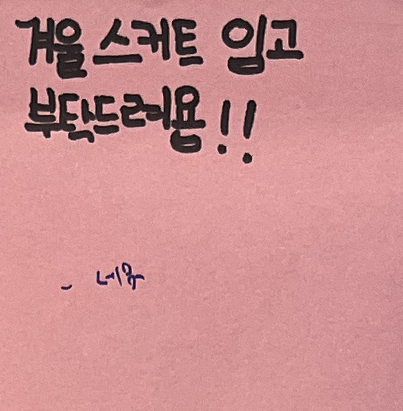 겨울 스커트 입고
부탁드려욤!!
- 네옹